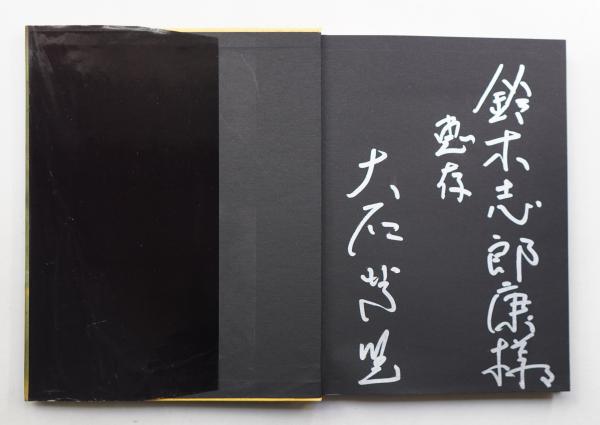 鈴木志郎康様
恵存
大石芳野